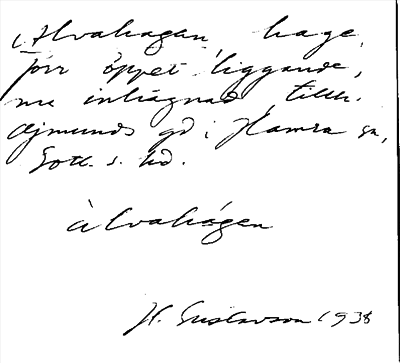 Alvahagen, hage,
förr öppet liggande,
nu inhägnad, tillh.
Ajmunds gd i Hamra sn,
Gotl. s. hd.
àlvahágen
H. Gustavson 1938